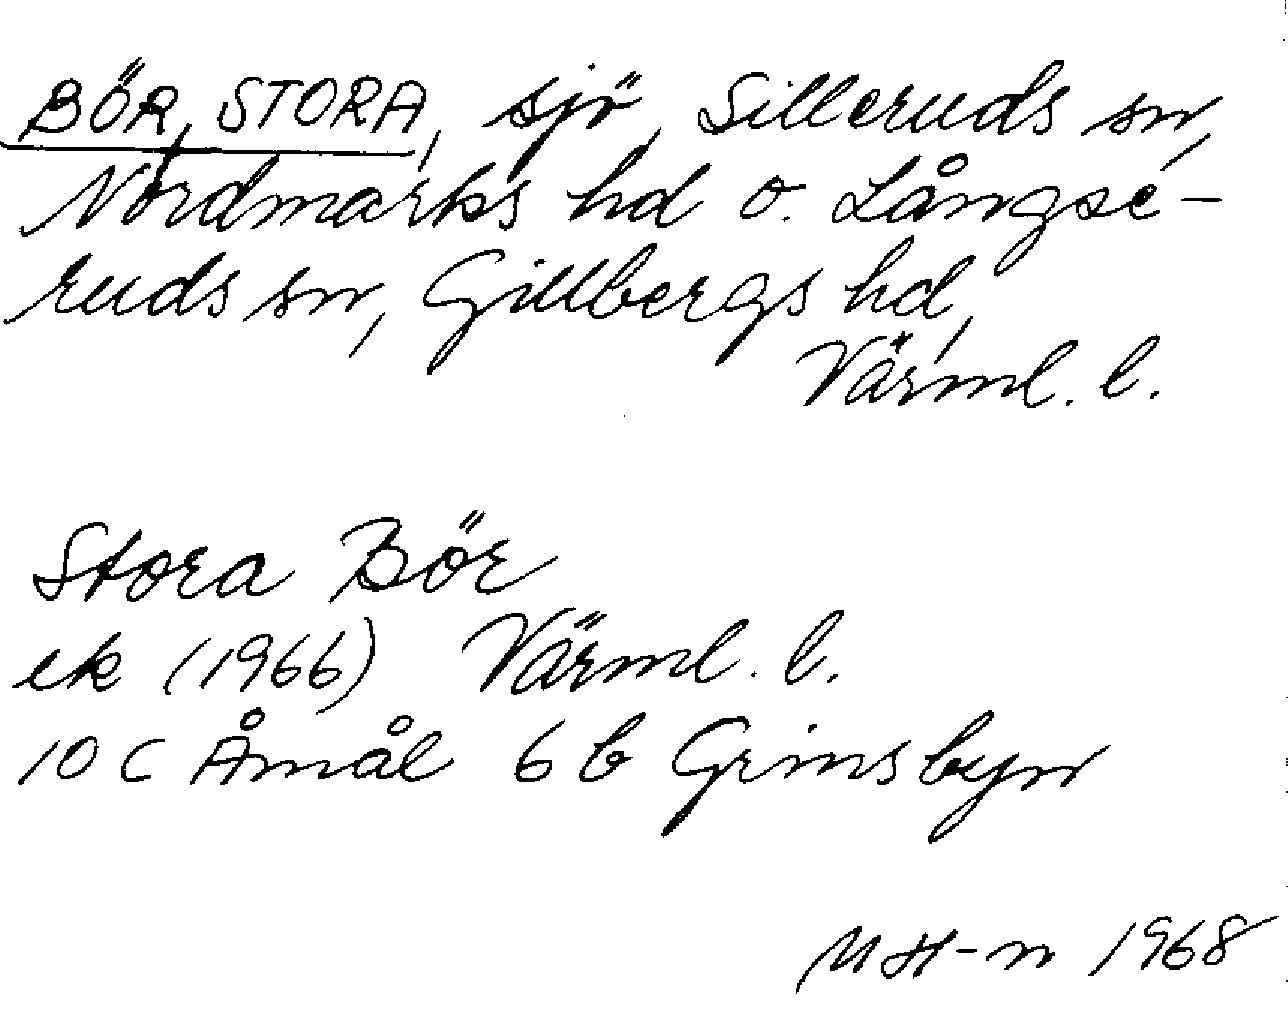 BÖR, STORA, sjö, Silleruds sn,
Nordmarks hd o. Långse-
ruds sn, Gillbergs hd,
Värml. l.
Stora Bör
ek (1966) Värml. l.
10 C Åmål 6 b Grinsbyn
MH-n 1968